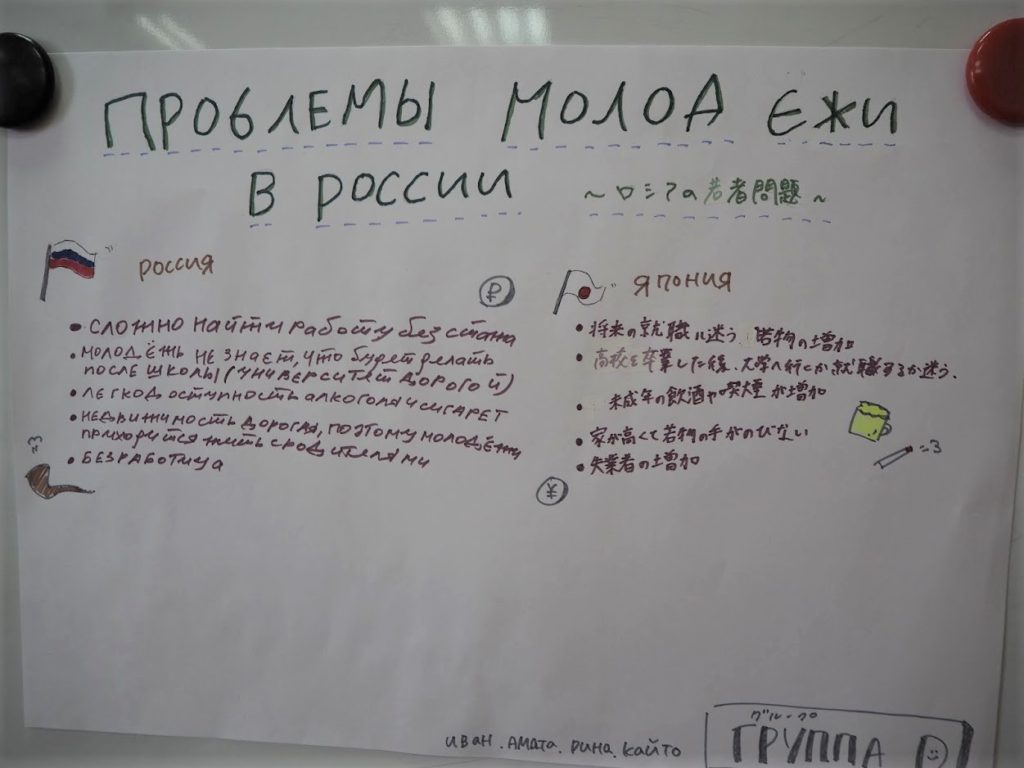 ПРОБЛЕМЫ МОЛОДЕЖИ
В РОССИИ ~ロシアの若者問題~
РОССИЯ
₽
• СЛОЖНО НАЙТИ РАБОТУ БЕЗ СТАЖА
• МОЛОДЁЖЬ НЕ ЗНАЕТ, ЧТО БУДЕТ ДЕЛАТЬ
ПОСЛЕ ШКОЛЫ (УНИВЕРСИТЕТ ДОРОГОЙ)
• ЛЕГКОДОСТУПНОСТЬ АЛКОГОЛЯ И СИГАРЕТ
• НЕДВИЖИМОСТЬ ДОРОГАЯ, ПОЭТОМУ МОЛОДЁЖИ
ПРИХОДИТСЯ ЖИТЬ С РОДИТЕЛЯМИ
• БЕЗРАБОТИЦА
ЯПОНИЯ
• 将来の就職に迷う 若物の増加
• 高校を卒業した後、大学へ行くか就職するか迷う.
• 未成年の飲酒や喫煙が増加
• 家が高くて若物の手がのびない
• 失業者の増加
¥
グループ
ГРУППА D
ИВАН. АМАТА. РИНА. КАЙТО